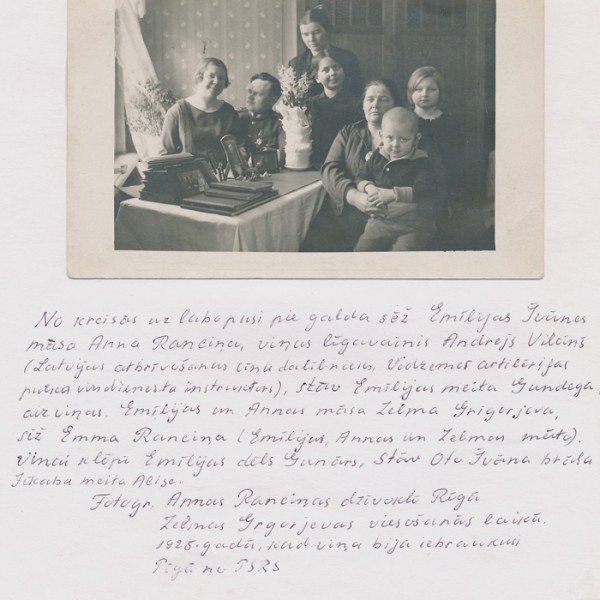 No kreisās uz labo pusi pie galda sēž Emīlijas Īvānes
māsa Anna Ranciņa, viņas līgavainis Andrejs Vilciņš
(Latvijas atbrīvošanas cīņu dalībnieks, Vidzemes artilērijas
pulka virsdienesta instruktors), stāv Emīlijas meita Gundega,
aiz viņas. Emīlijas un Annas māsa Zelma Grigorjeva,
sēž Emma Ranciņa (Emīlijas, Annas un Zelmas māte).
Viņai klēpī Emīlijas dēls Gunārs, stāv Oto Īvāna brāļa
Jēkaba meita Alise.
Fotogr. Annas Ranciņas dzīvoklī Rīgā
Zelmas Grgorjevas viesošanās laikā.
1925. gadā, kad viņa bija iebraukusi
Rīgā no PSRS